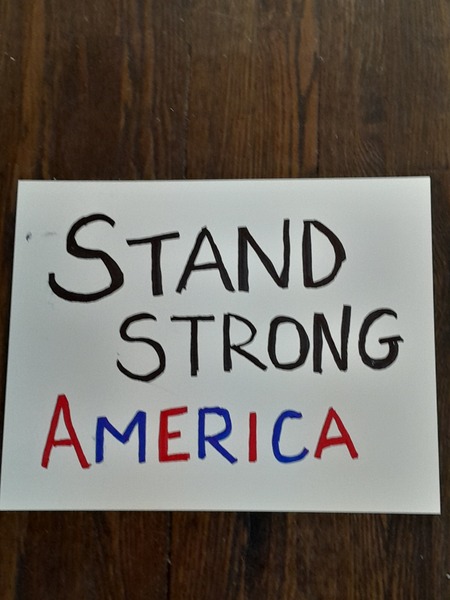 STAND
STRONG
AMERICA